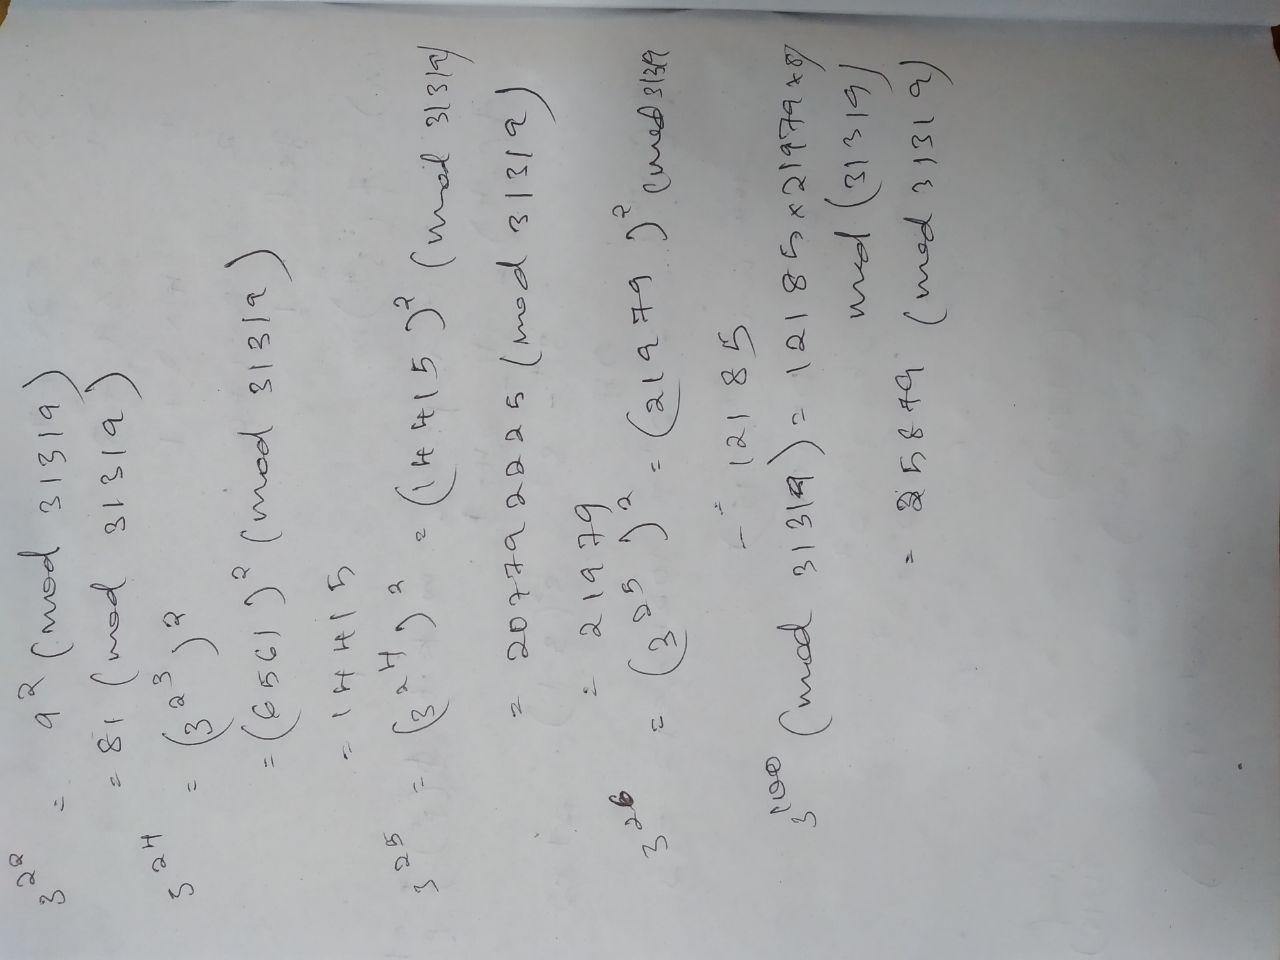 3^2^2 = 9^2 (mod 31319)
= 81 (mod 31319)
3^2^4 = (3^2^3)^2
= (6561)^2 (mod 31319)
= 14415
3^2^5 = (3^2^4)^2 = (14415)^2 (mod 31319)
= 207792225 (mod 31319)
= 21979
3^2^6 = (3^2^5)^2 = (21979)^2 (mod 31319
= 12185
3^100 (mod 31319) = 12185×21979×81
mod (31319)
= 25879 (mod 31319)